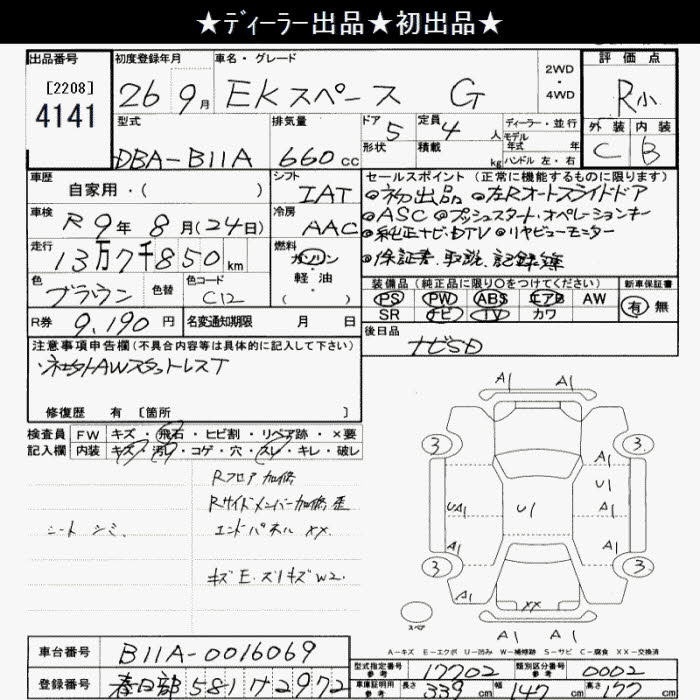 ★ディーラー出品★初出品★
出品番号
[2208]
4141
初度登録年月
26 9月
車名・グレード
EKスペース G
2WD
・
4WD
評価点
R小
外装 内装
C B
型式
DBA-B11A
排気量
660cc
ドア 5
形状
定員 4人
積載 kg
ディーラー・並行
モデル
年式 年
ハンドル 左・右
車歴
自家用・( )
シフト
IAT
車検
R9年8月(24日)
冷房
AAC
走行
13万7千850km
燃料
ガソリン
・
軽油
( )
色
ブラウン
色替
色コード
C12
R券 9,190円
名変通知期限 月 日
セールスポイント (正常に機能するものに限ります)
◎初出品 ◎左Rオートスライドドア
◎ASC ◎プッシュスタート・オペレーションキー
◎純正ナビ・DTV ◎リヤビューモニター
◎保証書、取説、記録簿
装備品 (純正品に限り○をつけてください)
PS PW ABS エアB AW
SR ナビ TV カワ
新車保証書
有 無
後日品
ナビSD
注意事項申告欄(不具合内容等は具体的に記入して下さい)
社外AWスタットレスT
修復歴 有 [箇所 ]
検査員
記入欄
FW キズ・飛石・ヒビ割・リペア跡・×要
内装 キズ・汚レ・コゲ・穴・スレ・キレ・破レ
シート シミ、
Rフロア加修
Rサイドメンバー加修歪
エンドパネル XX.
キズE.ズリキズW2.
A1 A1
3 3
A1
U1
UA1 U1 A1
A1 A1
3 3
A1
XX
スペア
A1 A1
A-キズ E-エクボ U-凹み W-補修跡 S-サビ C-腐食 XX-交換済
車台番号 B11A-0016069
登録番号 春日部 581 け 2972
型式指定番号
参考
17702
類別区分番号
参考
0002
車庫証明用
参考
長さ 339cm 幅 147cm 高さ 177cm